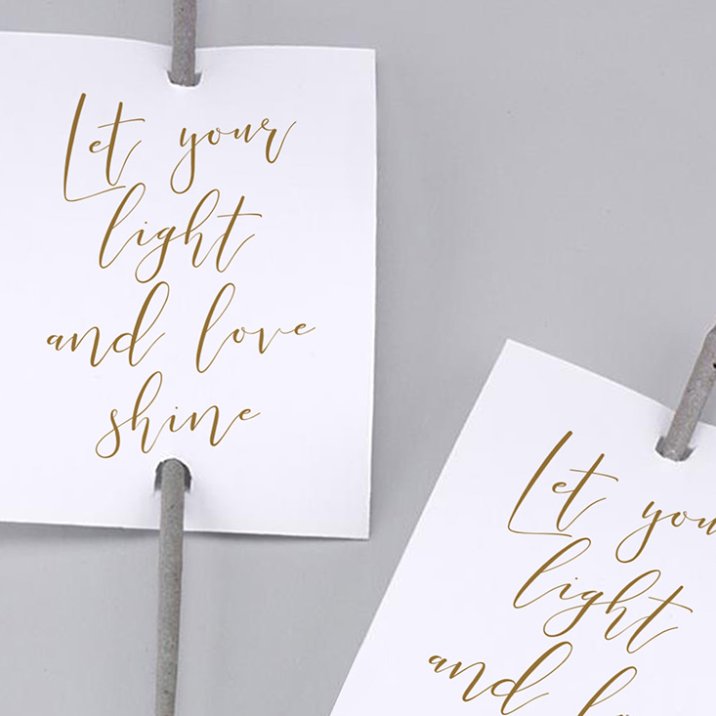 Let your
light
and love
shine
Let
light
and